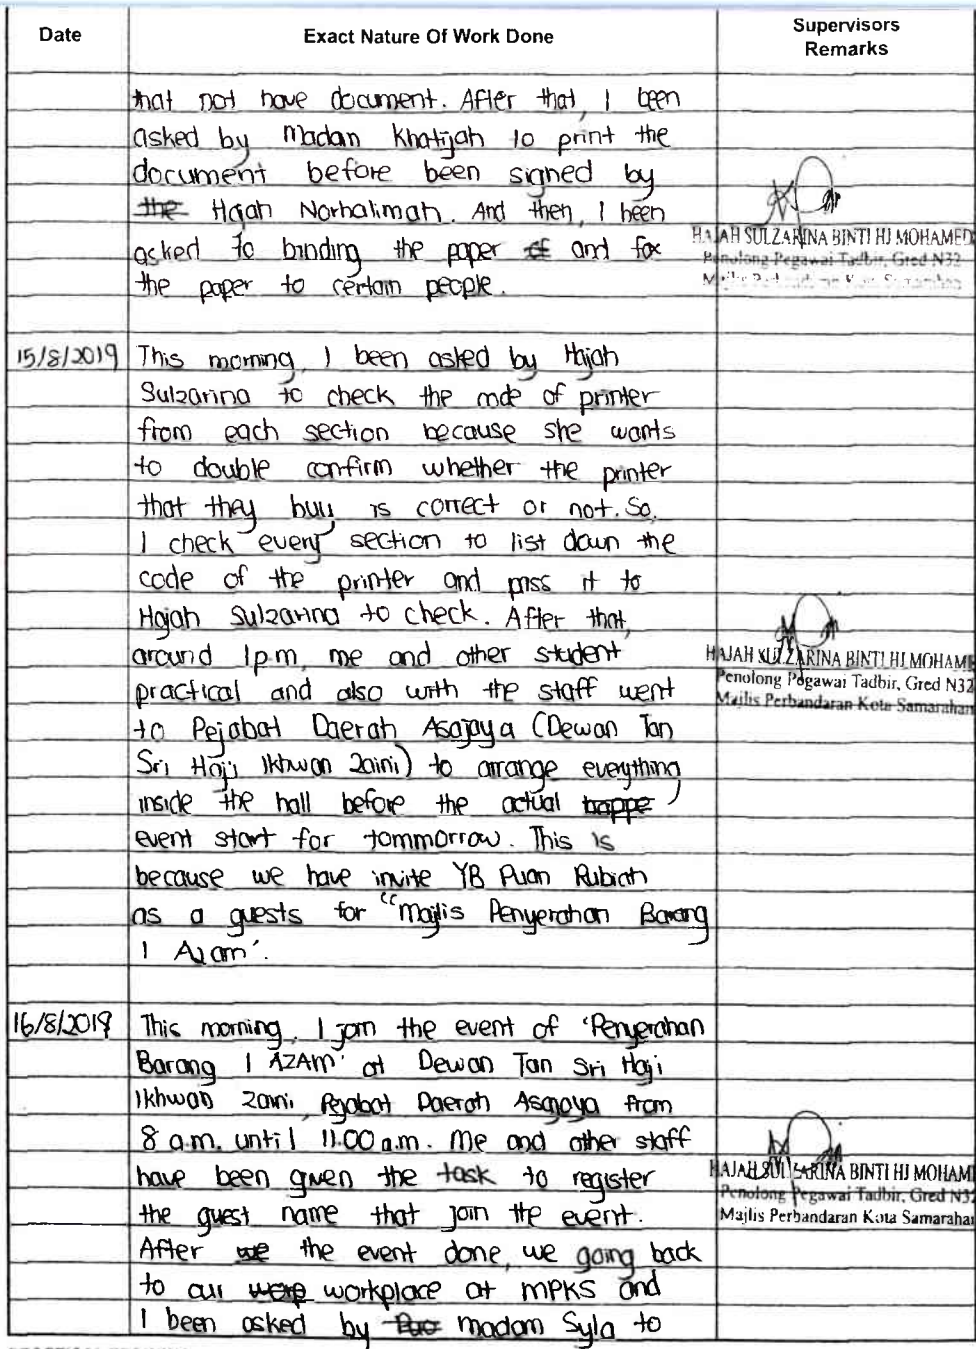 Date
Exact Nature Of Work Done
Supervisors
Remarks
that not have document. After that, I been
asked by Madan Khatijah to print the
document before been signed by
the Hajah Norhalimah. And then, I been
asked to binding the paper of and fax
the paper to certain people.
HAJAH SULZARINA BINTI HJ MOHAMED
Penolong Pegawai Tadbir, Gred N32
Majlis Perbandaran Kota Samarahan
15/8/2019
This morning, I been asked by Hajah
Sulzarina to check the code of printer
from each section because she wants
to double confirm whether the printer
that they buy is correct or not. So,
I check every section to list down the
code of the printer and pass it to
Hajah Sulzarina to check. After that,
around 1p.m, me and other student
practical and also with the staff went
to Pejabat Daerah Asajaya (Dewan Tan
Sri Haji Ikhwan Zaini) to arrange everything
inside the hall before the actual happe
event start for tommorrow. This is
because we have invite YB Puan Rubiah
as a guests for "Majlis Penyerahan Barang
1 Azam'.
HAJAH SULZARINA BINTI HJ MOHAME
Penolong Pegawai Tadbir, Gred N32
Majlis Perbandaran Kota Samarahan
16/8/2019
This morning, I join the event of 'Penyerahan
Barang 1 AZAM' at Dewan Tan Sri Haji
Ikhwan Zaini, Pejabat Daerah Asajaya from
8 a.m. until 11.00 a.m. Me and other staff
have been given the task to register
the guest name that join the event.
After we the event done, we going back
to our work workplace at MPKS and
I been asked by Pua madam Syla to
HAJAH SULZARINA BINTI HJ MOHAME
Penolong Pegawai Tadbir, Gred N32
Majlis Perbandaran Kota Samarahan